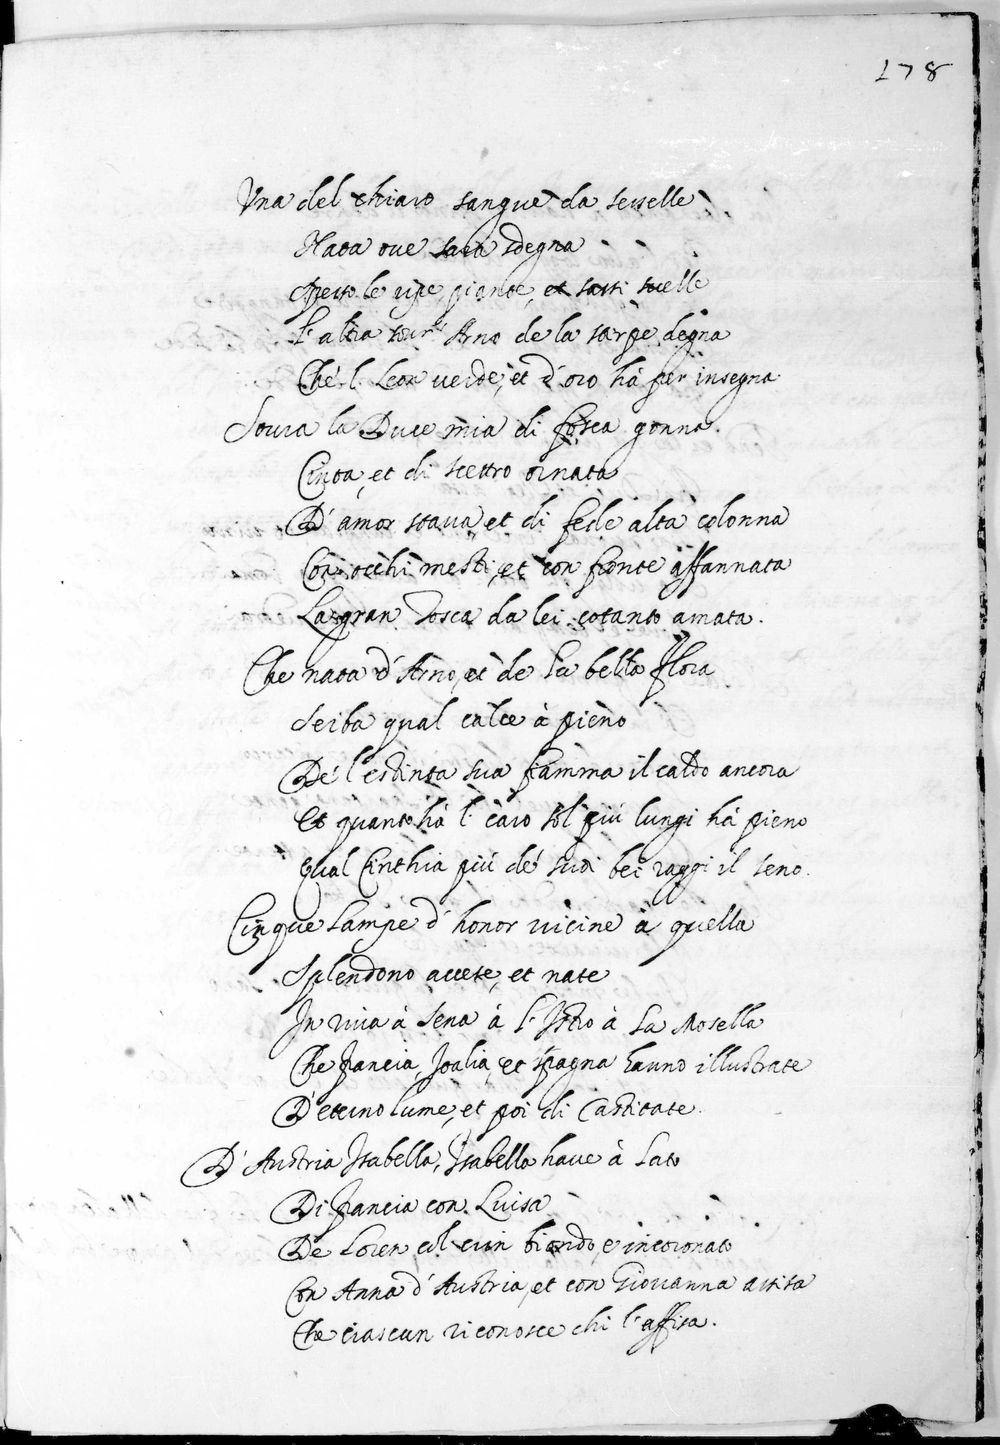 178
Una del chiaro sangue da le stelle
Nata ove
Presso le ripe, piante, et sassi svelle
L'altra Arno de la degna
Che'l Leon verde, et d'oro hà per insegna.
Sovra la Duce mia di fosca gonna.
Cinta, et di scettro ornata
D'amor stava, et di fede alta colonna
Con occhi mesti, et con fronte affannata
La gran Tosca da lei cotanto amata.
Che nata d'Arno, et de la bella Flora
Serba qual calce à pieno
De l'estinta sua fiamma il caldo ancora
Et quanto hà l' caro sol più lungi hà pieno
Qual Cinthia più de' suoi bei raggi il seno.
Cinque Lampe d'honor vicine à quella
Splendono accese, et nate
In riva à Sena à l'Istro à La Mosella
Che Francia, Italia, et Spagna hanno illustrate
D'eterno lume, et poi di Castitate.
D'Austria Isabella, Isabella have à Lato
Di Francia con Luisa
De Loren col crin biondo, e incoronato
Con Anna d'Austria, et con Giovanna assisa
Che ciascun riconosce chi l'affisa.